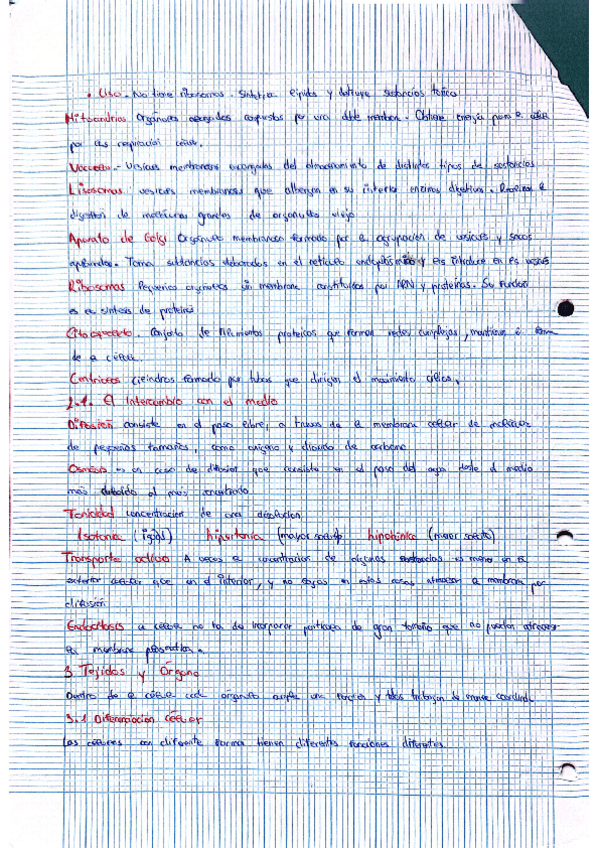 • Liso. No tiene ribosomas. Sintetiza lípidos y destruye sustancias tóxicas
Mitocondrias Orgánulos alargados compuestos por una doble membrana. Obtiene energía para la célula
por la respiración celular.
Vacuolas.- Vesículas membranosas encargadas del almacenamiento de distintos tipos de sustancias
Lisosomas vesículas membranosas que albergan en su interior enzimas digestivas. Realizan la
digestión de moléculas grandes de orgánulos viejo
Aparato de Golgi Orgánulo membranoso formado por la agrupación de vesículas y sacos
aplanados. Toma sustancias elaboradas en el retículo endoplasmático y las introduce en las
Ribosomas Pequeños orgánulos sin membrana constituidos por ARN y proteínas. Su función
es la síntesis de proteína
Citoesqueleto. Conjunto de filamentos proteicos que forman redes complejas, mantiene la forma
de la célula.
Centriolos cilindros formado por tubos que dirigen el movimiento
2.1. El Intercambio con el medio
Difusión consiste en el paso libre, a través de la membrana celular de moléculas
de pequeños tamaños, como oxígeno y dióxido de carbono
Osmosis es un caso de difusión que consiste en el paso del agua desde el medio
más diluido al más concentrado
Tonicidad concentración de una disolución
Isotonía (igual) hipertonía (mayor soluto) hipotónica (menor soluto)
Transporte activo A veces la concentración de algunas sustancias es menor en el
exterior celular que en el interior, y no en estos casos atravesar la membrana por
difusión
Endocitosis la célula ha de incorporar partículas de gran tamaño que no pueden atravesar
la membrana plasmática.
3 Tejidos y Órgano
Dentro de la célula cada orgánulo cumple una función y todos trabajan de manera coordinada
3.1 Diferenciación celular
Las células con diferente forma tienen diferentes funciones diferentes.